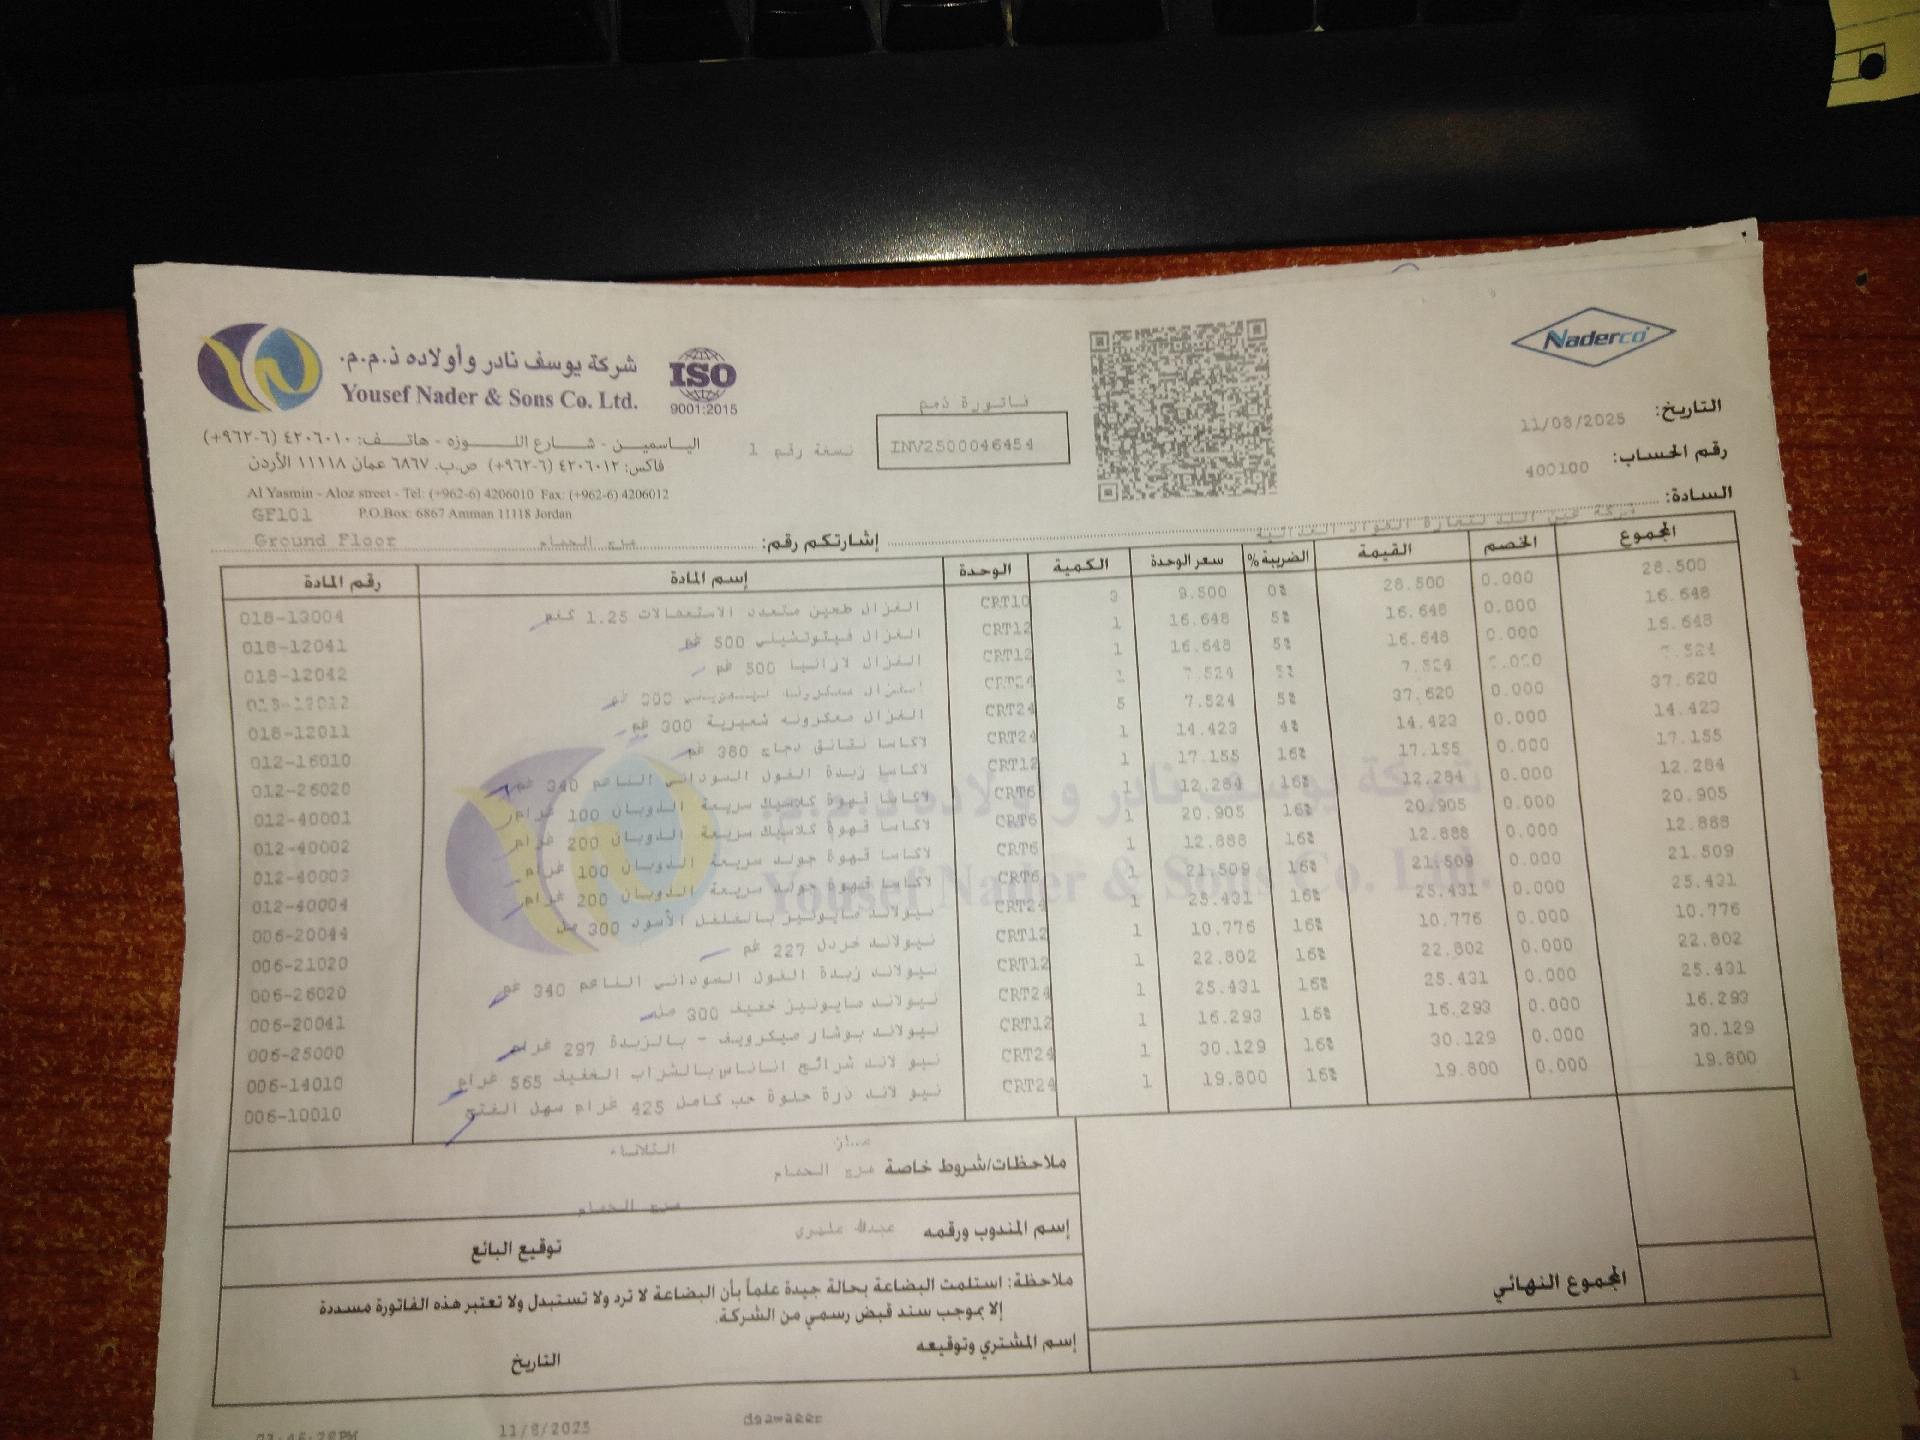 Naderco
شركة يوسف نادر وأولاده ذ.م.م.
Yousef Nader & Sons Co. Ltd.
ISO
9001:2015
الياسمين - شارع اللوزه - هاتف: ٤٢٠٦٠١٠ (٦-٩٦٢+)
فاكس: ٤٢٠٦٠١٢ (٦-٩٦٢+) ص.ب. ٦٨٦٧ عمان ١١١١٨ الأردن
Al Yasmin - Aloz street - Tel: (+962-6) 4206010 Fax: (+962-6) 4206012
P.O.Box: 6867 Amman 11118 Jordan
GF101
Ground Floor
فاتورة ذمم
INV2500046454
نسخة رقم 1
التاريخ: 11/08/2025
رقم الحساب: 400100
السادة: شركة عين اللد لتجارة المواد الغذائية
إشارتكم رقم: مرج الحمام
رقم المادة إسم المادة الوحدة الكمية سعر الوحدة الضريبة % القيمة الخصم المجموع
018-13004 الغزال طحين متعدد الاستعمالات 1.25 كغم CRT10 3 9.500 0% 28.500 0.000 28.500
018-12041 الغزال فيتوتشيلي 500 غم CRT12 1 16.648 5% 16.648 0.000 16.648
018-12042 الغزال لازانيا 500 غم CRT12 1 16.648 5% 16.648 0.000 16.648
018-12012 الغزال معكرونه 300 غم CRT24 1 7.524 5% 7.524 0.000 7.524
018-12011 الغزال معكرونه شعيرية 300 غم CRT24 5 7.524 5% 37.620 0.000 37.620
012-16010 لاكاسا نقانق دجاج 380 غم CRT24 1 14.423 4% 14.423 0.000 14.423
012-26020 لاكاسا زبدة الفول السوداني الناعم 340 غم CRT12 1 17.155 16% 17.155 0.000 17.155
012-40001 لاكاسا قهوة كلاسيك سريعة الذوبان 100 غرام CRT6 1 12.284 16% 12.284 0.000 12.284
012-40002 لاكاسا قهوة كلاسيك سريعة الذوبان 200 غرام CRT6 1 20.905 16% 20.905 0.000 20.905
012-40003 لاكاسا قهوة جولد سريعة الذوبان 100 غرام CRT6 1 12.888 16% 12.888 0.000 12.888
012-40004 لاكاسا قهوة جولد سريعة الذوبان 200 غرام CRT6 1 21.509 16% 21.509 0.000 21.509
006-20044 نيولاند مايونيز بالفلفل الأسود 300 مل CRT24 1 25.431 16% 25.431 0.000 25.431
006-21020 نيولاند خردل 227 غم CRT12 1 10.776 16% 10.776 0.000 10.776
006-26020 نيولاند زبدة الفول السوداني الناعم 340 غم CRT12 1 22.802 16% 22.802 0.000 22.802
006-20041 نيولاند مايونيز خفيف 300 مل CRT24 1 25.431 16% 25.431 0.000 25.431
006-25000 نيولاند بوشار ميكرويف - بالزبدة 297 غرام CRT12 1 16.293 16% 16.293 0.000 16.293
006-14010 نيو لاند شرائح اناناس بالشراب الخفيف 565 غرام CRT24 1 30.129 16% 30.129 0.000 30.129
006-10010 نيو لاند ذرة حلوة حب كامل 425 غرام سهل الفتح CRT24 1 19.800 16% 19.800 0.000 19.800
شركة يوسف نادر وأولاده ذ.م.م.
Yousef Nader & Sons Co. Ltd.
عمان الثلاثاء
ملاحظات/شروط خاصة مرج الحمام
مرج الحمام
إسم المندوب ورقمه عبدالله
توقيع البائع
ملاحظة: استلمت البضاعة بحالة جيدة علماً بأن البضاعة لا ترد ولا تستبدل ولا تعتبر هذه الفاتورة مسددة
إلا بموجب سند قبض رسمي من الشركة.
إسم المشتري وتوقيعه
التاريخ
المجموع النهائي
1
11/8/2025